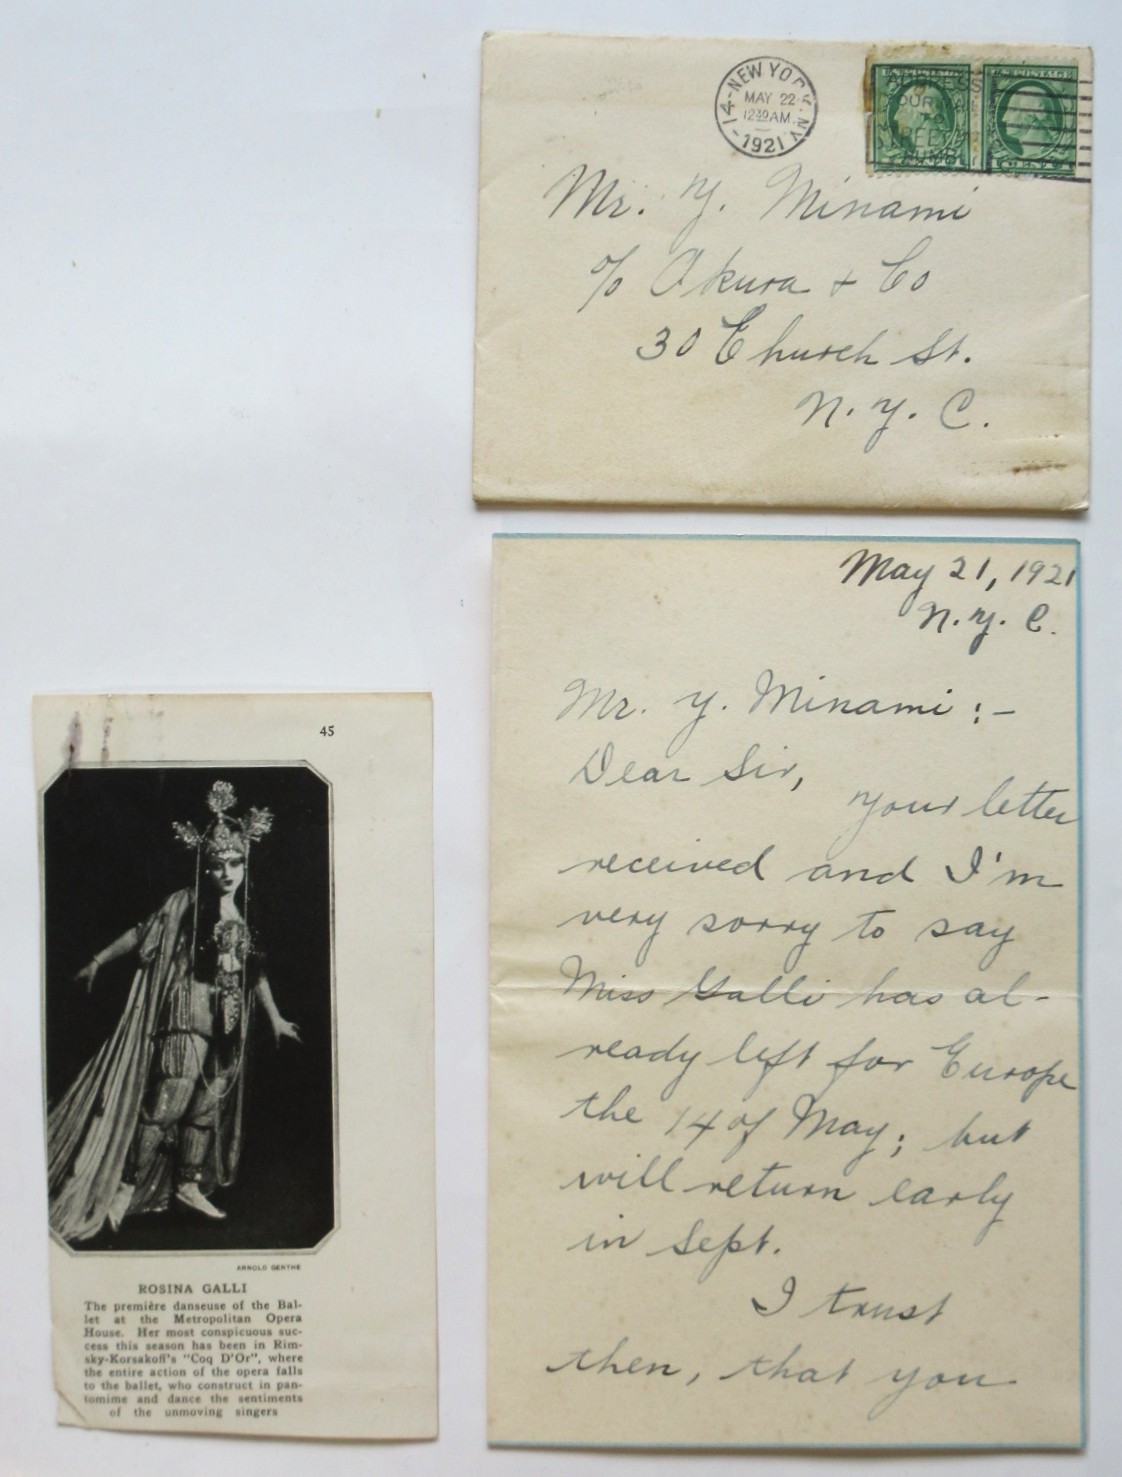 NEW YORK, N.Y.
14
MAY 22
12 30 AM
1921
ADDRESS
YOUR MAIL
TO
STREET AND
NUMBER
U.S. POSTAGE
U.S. POSTAGE
Mr. Y. Minami
c/o Okura + Co
30 Church St.
N. Y. C.
May 21, 1921
N. Y. C.
Mr. Y. Minami :-
Dear Sir,
Your letter
received and I'm
very sorry to say
Miss Galli has al-
ready left for Europe
the 14 of May; but
will return early
in Sept.
I trust
then, that you
45
ARNOLD GENTHE
ROSINA GALLI
The première danseuse of the Bal-
let at the Metropolitan Opera
House. Her most conspicuous suc-
cess this season has been in Rim-
sky-Korsakoff's "Coq D'Or", where
the entire action of the opera falls
to the ballet, who construct in pan-
tomime and dance the sentiments
of the unmoving singers